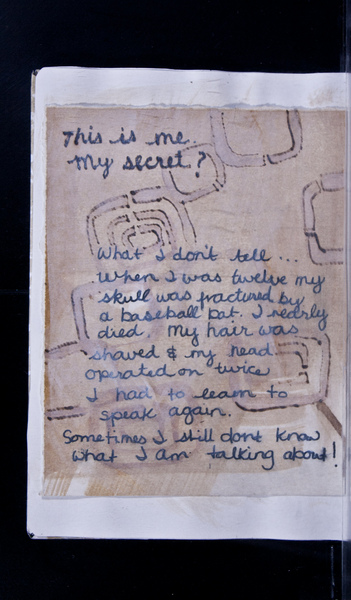 This is me.
My secret?
What I don't tell ...
When I was twelve my
skull was fractured by
a baseball bat. I nearly
died. My hair was
shaved & my head
operated on twice
I had to learn to
speak again.
Sometimes I still dont know
what I am talking about!